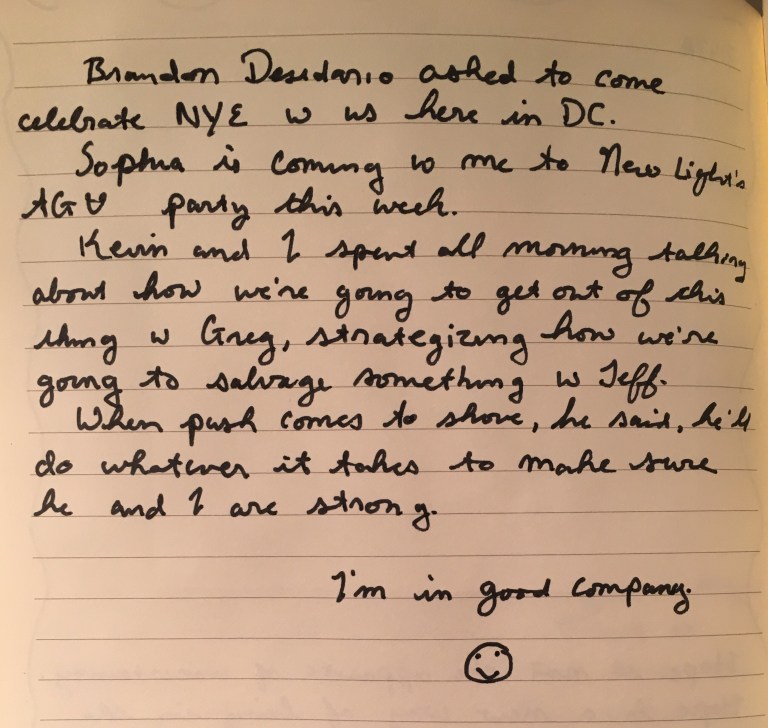 Brandon Desidario asked to come
celebrate NYE w us here in DC.
Sophia is coming w me to New Light's
AGU party this week.
Kevin and I spent all morning talking
about how we're going to get out of this
thing w Greg, strategizing how we're
going to salvage something w Jeff.
When push comes to shove, he said, he'll
do whatever it takes to make sure
he and I are strong.
I'm in good company.